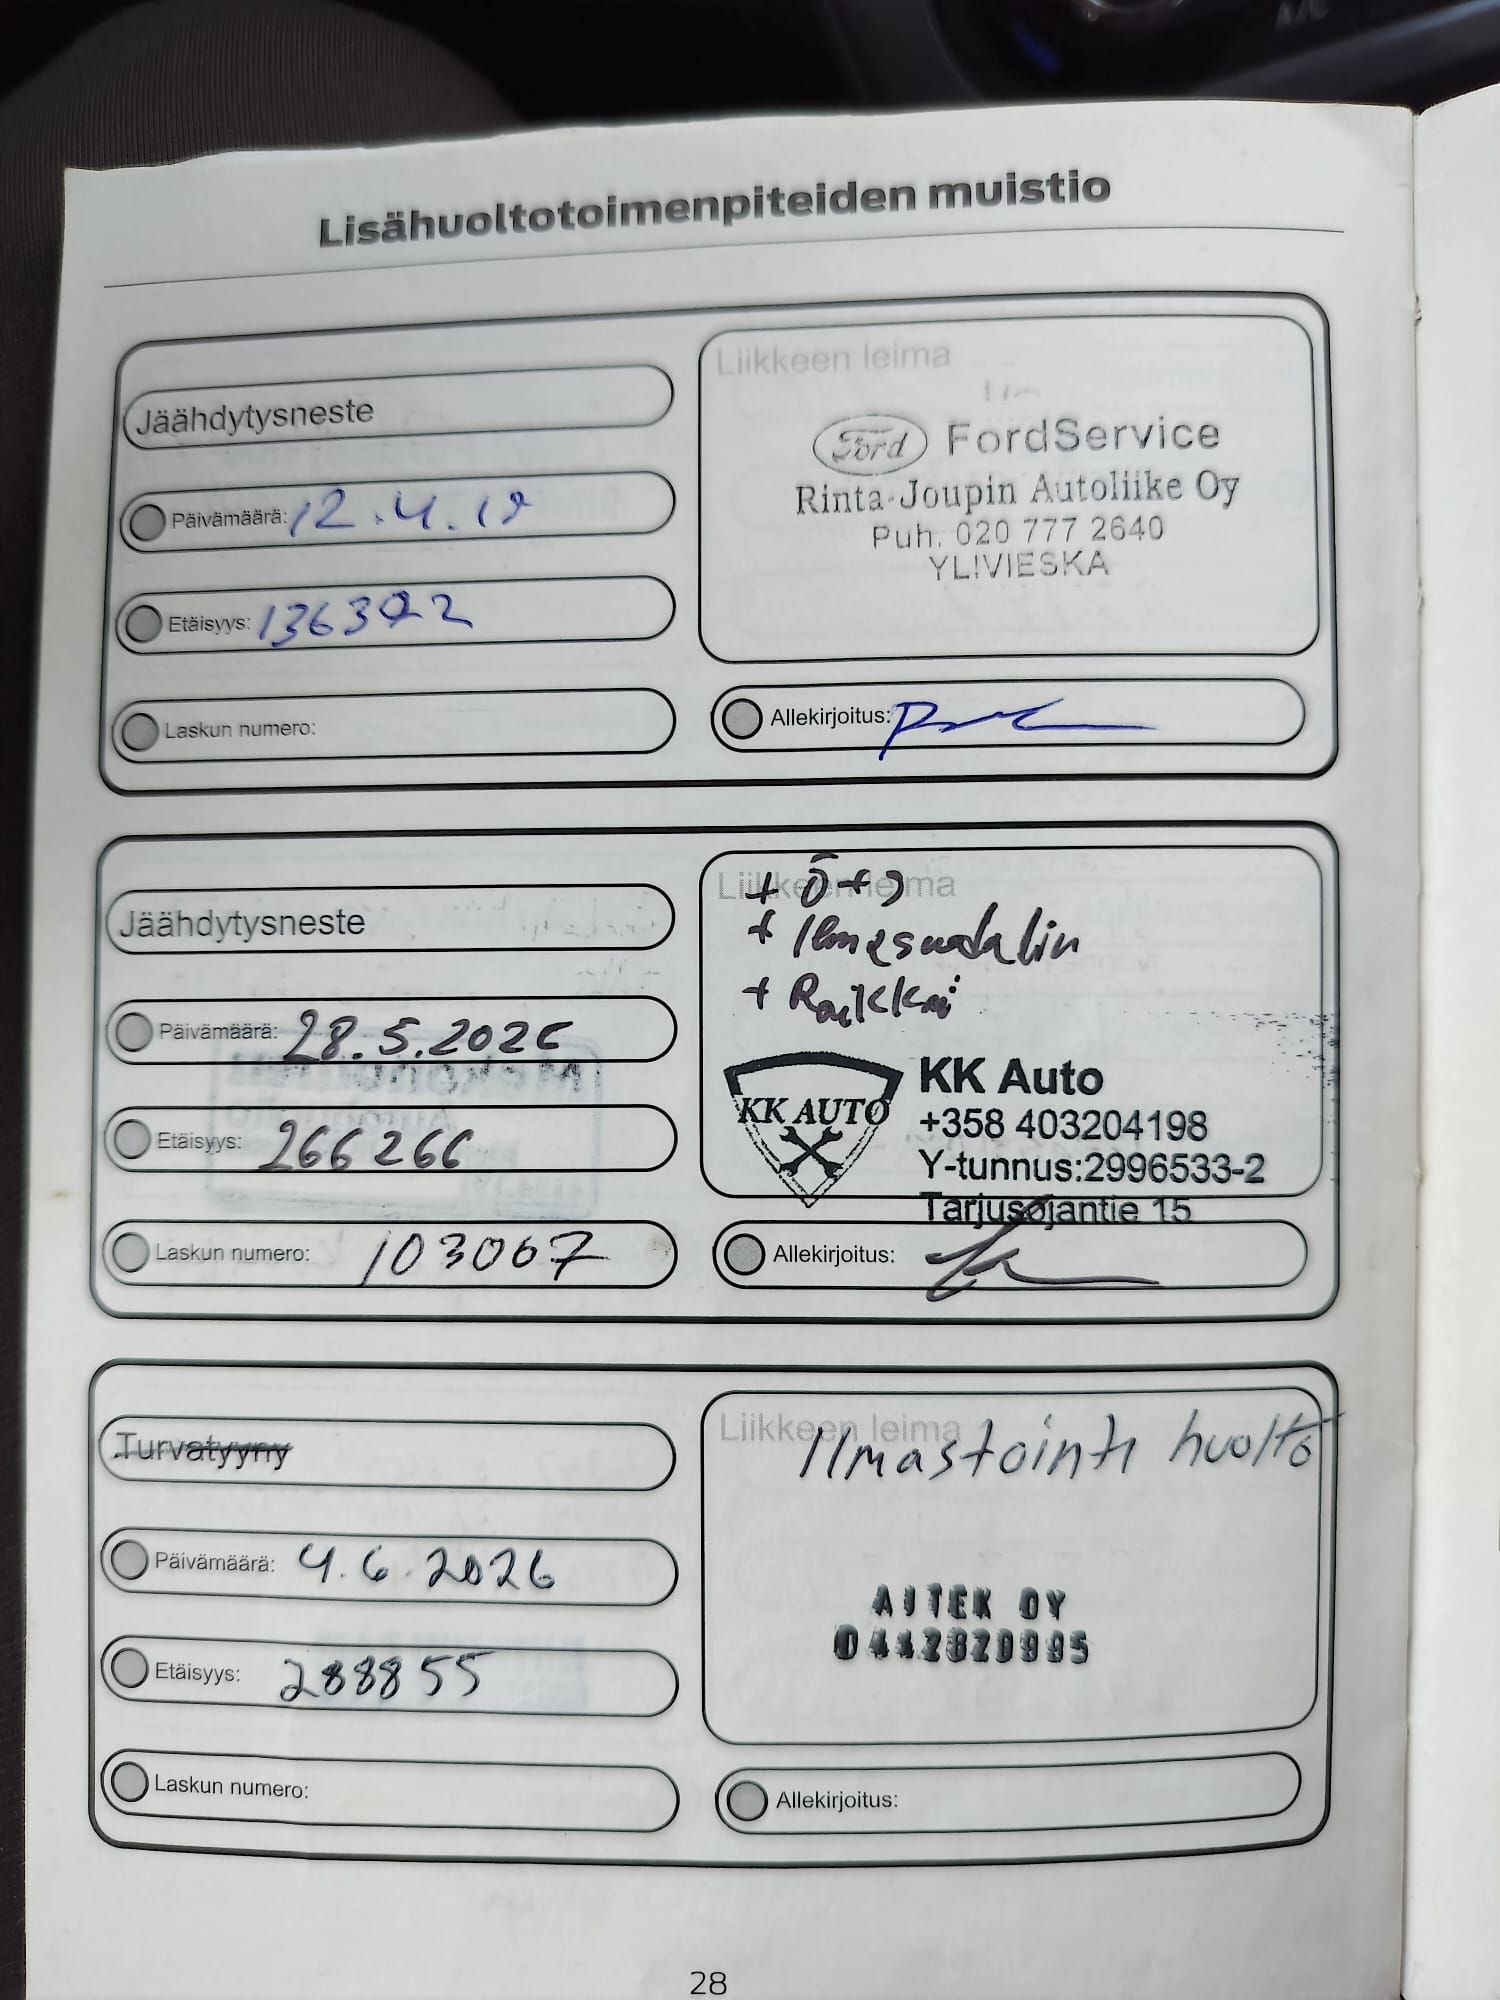 Lisähuoltotoimenpiteiden muistio
Jäähdytysneste
Päivämäärä: 12.4.19
Etäisyys:
Laskun numero:
Liikkeen leima
Ford FordService
Rinta-Joupin Autoliike Oy
Puh. 020 777 2640
YLIVIESKA
Allekirjoitus:
Jäähdytysneste
Päivämäärä: 28.5.2026
Etäisyys: 266266
Laskun numero: 103067
Liikkeen leima
+ Ö+S
+ Ilmasuodatin
+ Raikkai
KK AUTO
KK Auto
+358 403204198
Y-tunnus:2996533-2
Tarjusojantie 15
Allekirjoitus:
Turvatyyny
Päivämäärä: 4.6.2026
Etäisyys: 288855
Laskun numero:
Liikkeen leima
Ilmastointi huolto
AJTEK OY
0442820995
Allekirjoitus:
28